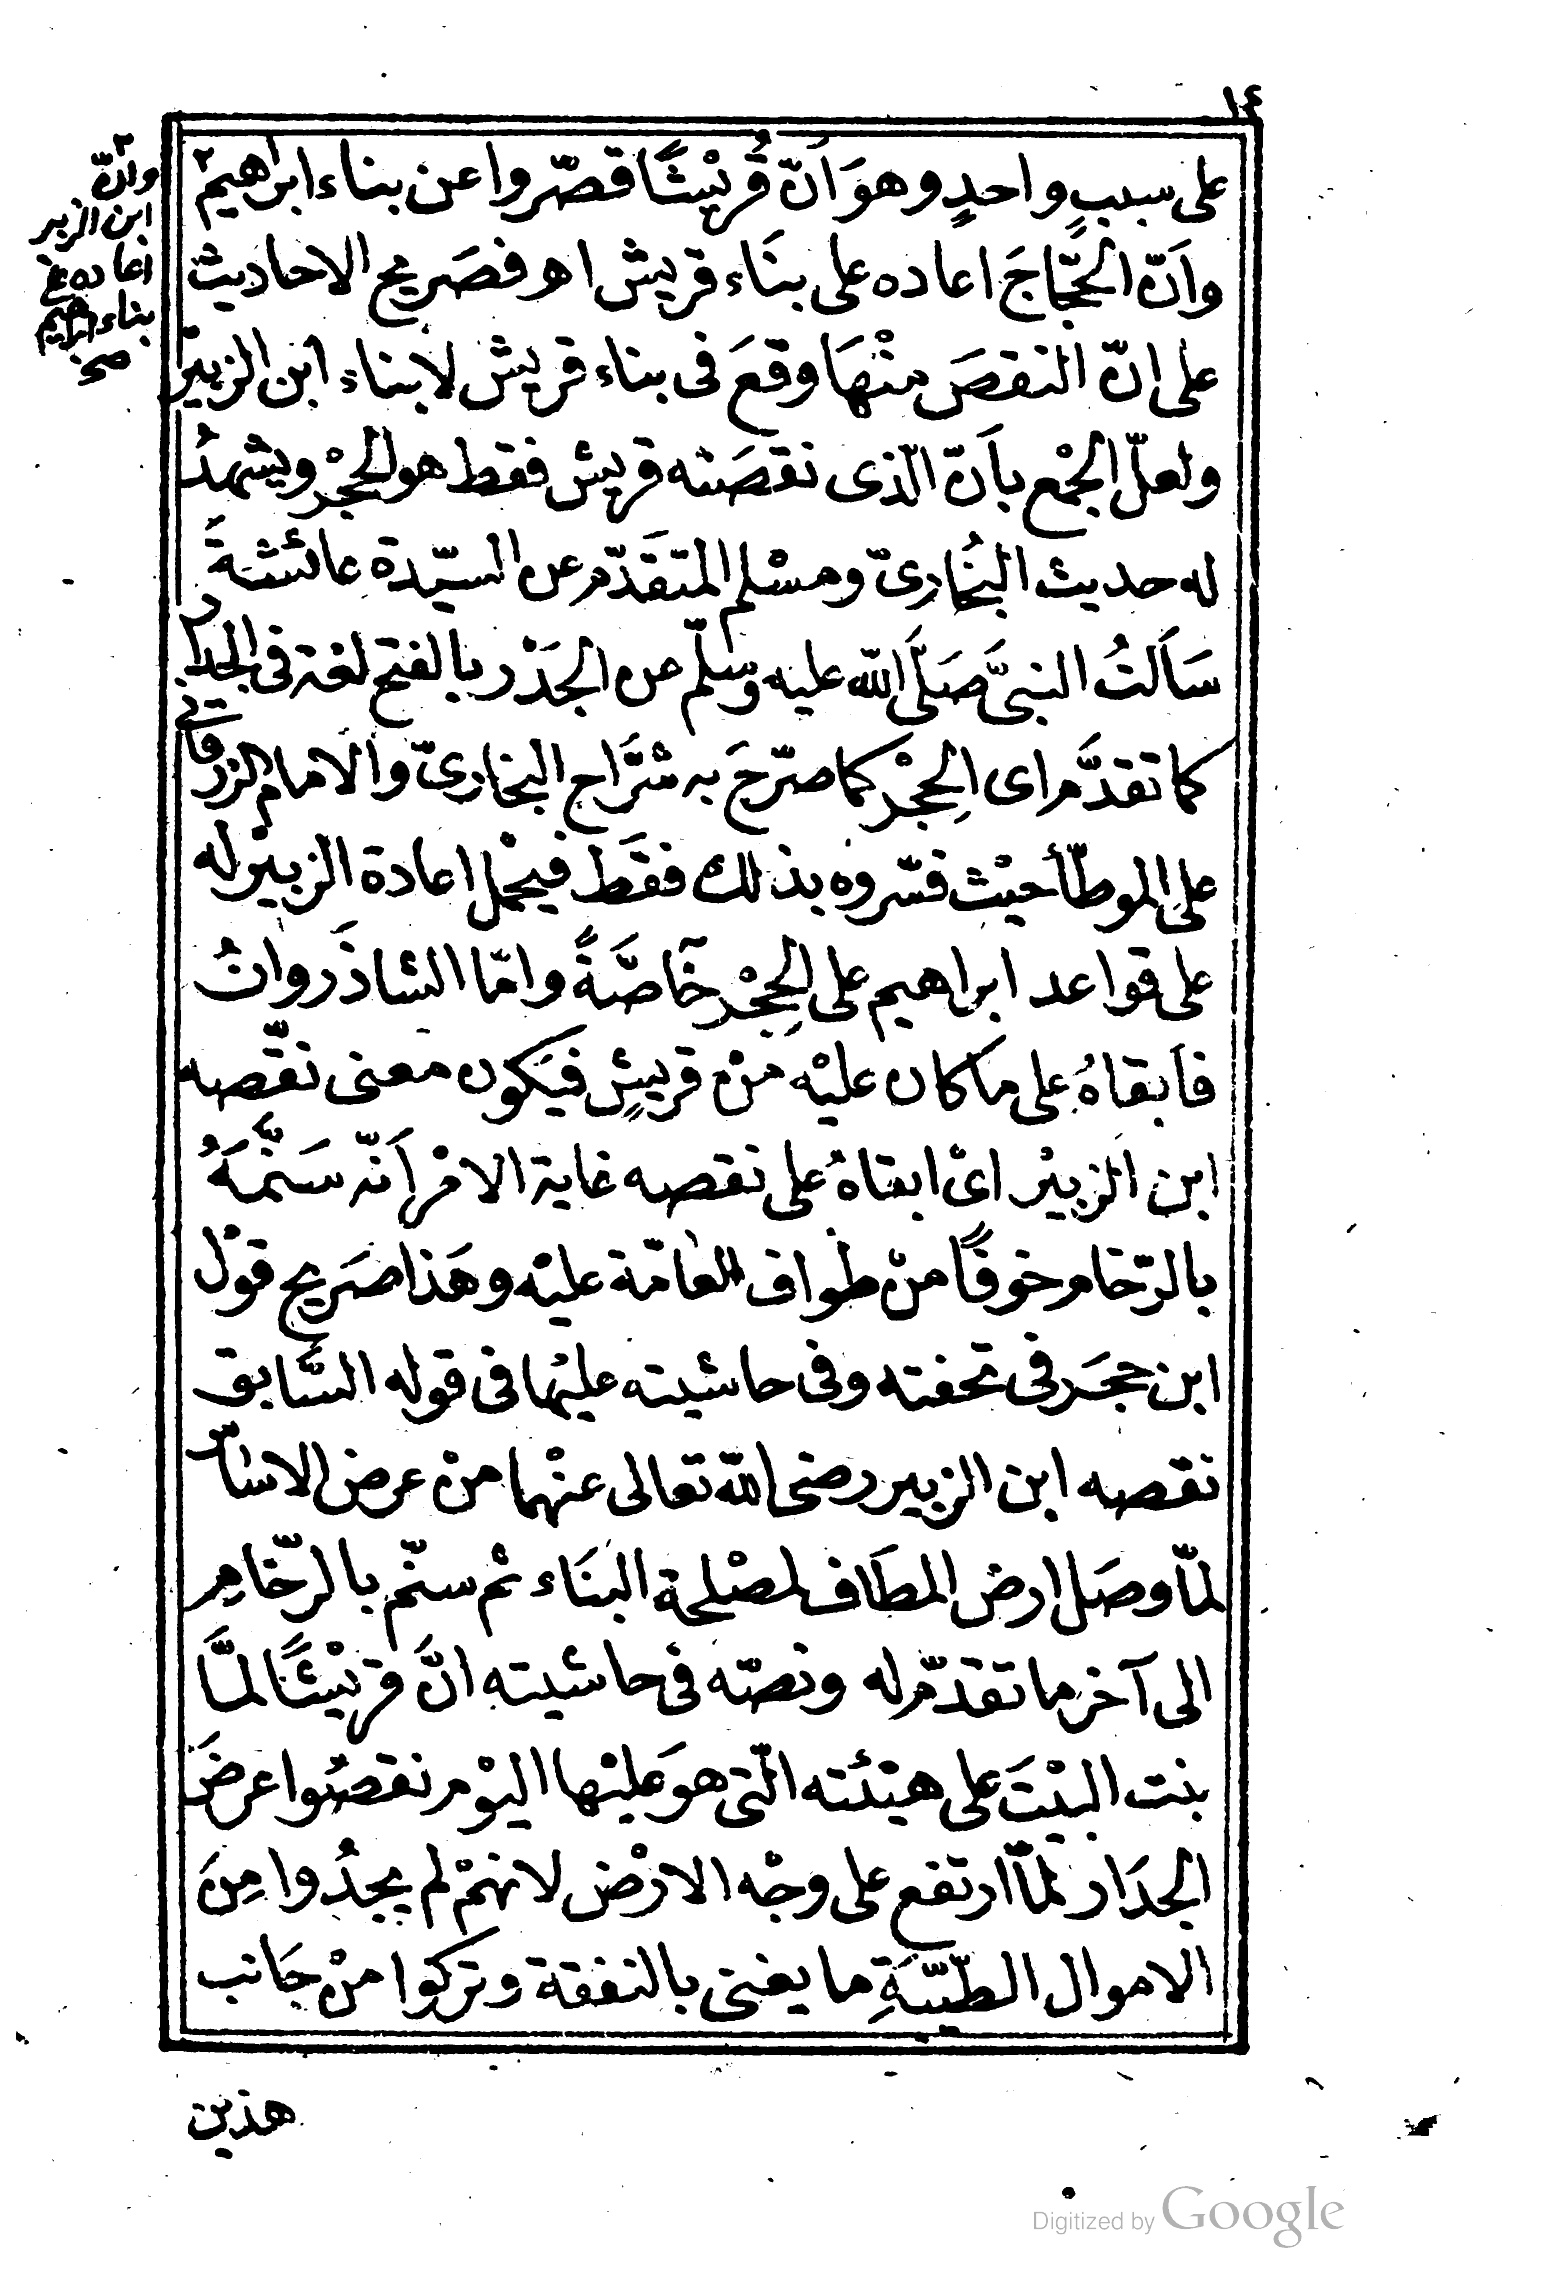 ١٤
على سببٍ واحدٍ وهوَ اَنّ قُريْشًا قصّروا عن بناء ابراهيم٢
واَنّ الحجّاجَ اعاده على بنَاء قريش اهـ فصَريح الاحاديث
على انّ النقصَ منْهَا وقعَ فى بناء قريش لابناء ابن الزبيْر
ولعلّ الجمْع باَنّ الّذى نقصَته قريش فقط هو الحِجْر ويشهدُ
له حديث البُخارىّ ومسْلم المتقَدّم عن السيّدة عائشةَ
سَاَلتُ النبىَّ صَلَّى الله عليه وسلّم عن الجَدْر بالفتح لغة فى الجدار
كما تقدَّم اى الحِجْر كما صرّحَ به شرَّاح البخارىّ والامام الزرقانى
على الموطّأ حيْث فسّروه بذلك فقَط فيحْمل اعادة الزبيْر له
على قواعد ابراهيم على الحِجْر خَآصَّةً وامّا الشاذَروانُ
فاَبقاهُ على ما كان عليْه منْ قريشٍ فيَكون معنى نقّصه
ابن الزبيْر اىْ ابقاهُ على نقصه غاية الامْر اَنّه سَنَّمَهُ
بالرّخام خوفًا منْ طواف العامّة عليْه وهَذا صَريح قوْل
ابن حجَر فى تحفته وفى حاشيته عليْها فى قوله السَّابق
نقصه ابن الزبير رضى الله تعالى عنْهما منْ عرض الاساس
لمّا وصَل ارض المطَاف لمصْلحة البنَاء ثم سنّم بالرّخام
الى آخر ما تقدّم له ونصّه فى حاشيته انَّ قريْشًا لمَّا
بنت البيْتَ على هيْئته الّتى هوَ عليْها اليوْم نقصُوا عرضَ
الجدَار لمّا ارتفع على وجْه الارْض لانهمْ لم يجدُوا مِنَ
الاموال الطيّبَةِ ما يفى بالنفقة وتركوا منْ جَانب
هذين
٢
وانّ
ابن الزبير
اعاده على
بناء ابراهيم
صح
Digitized by Google